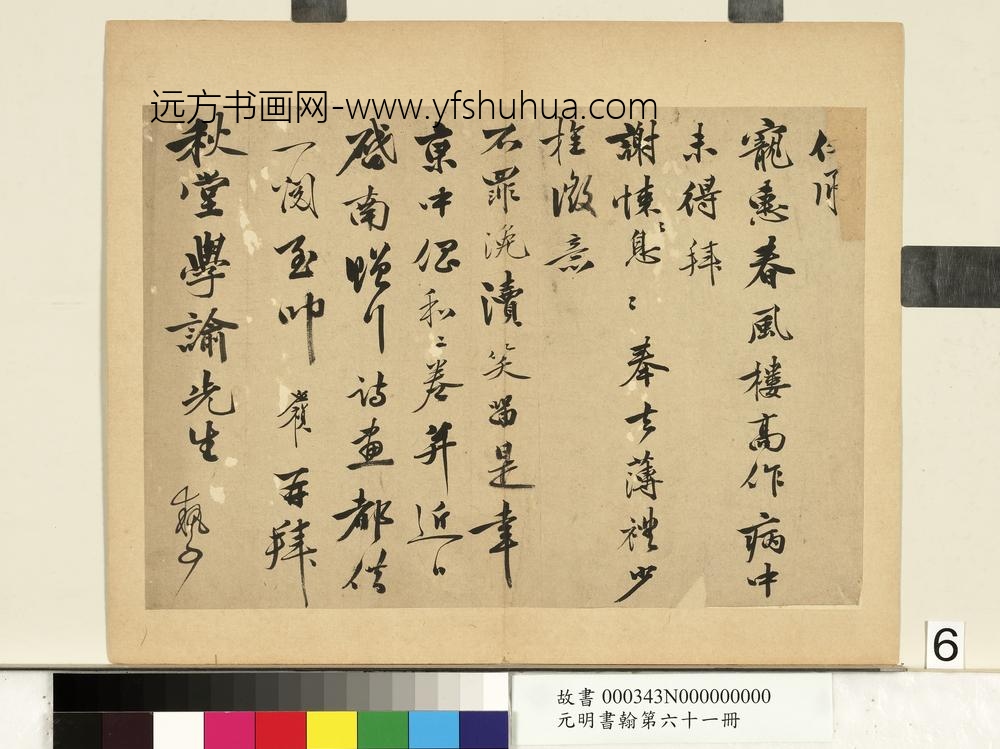 远方书画网-www.yfshuhua.com
寵惠春風樓高作病中
未得拜
謝悚〻息〻奉去薄禮少
旌微意
不罪浼瀆笑留是幸
東中偶和〻卷并近日
啓南贈行詩畫都借
一閱至叩 再拜
秋堂學諭先生 執事
6
故書 000343N000000000
元明書翰第六十一冊